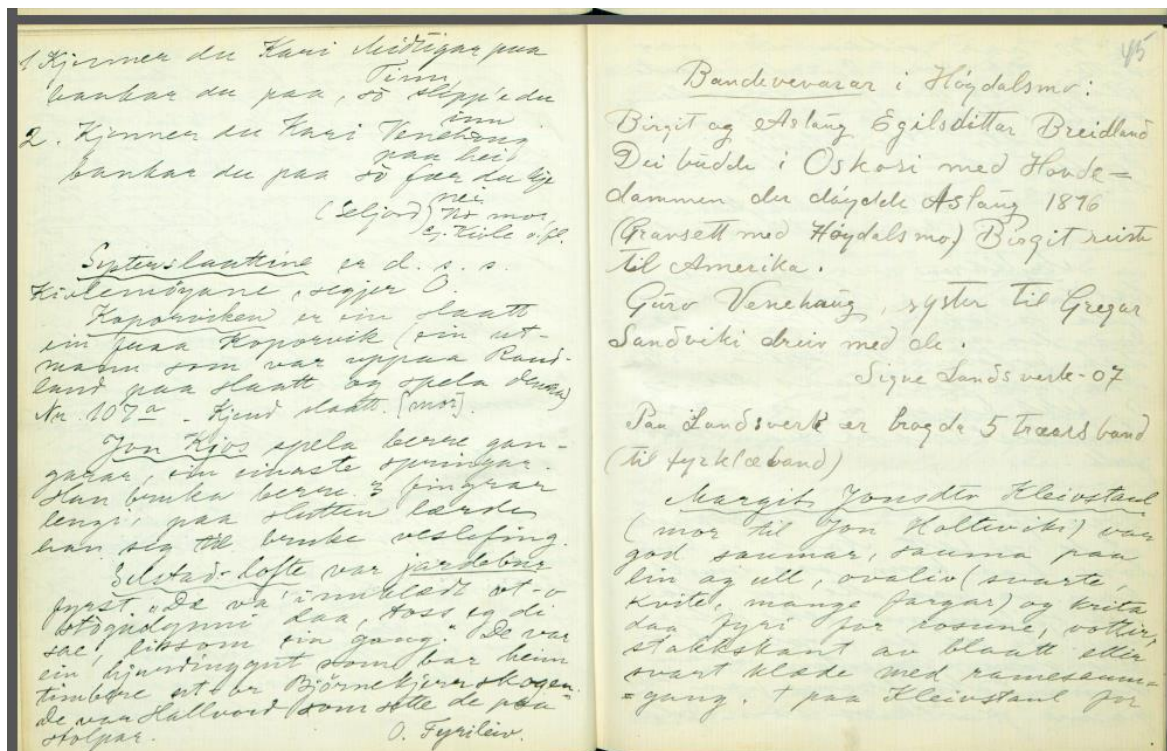 1 Kjenner du Kari Midtigar paa
Tinn,
bankar du paa, so slepp'e du
inn.
2. Kjenner du Kari Venehaug
paa hei
bankar du paa so fær du kje
nei
(Seljord) mor,
o. fl.
Systerslaattine er d. s. s.
Kivlemöyane, segjer O.
Koporviken er ein slaatt
ein fusa Koporvik (ein ut-
mann som var uppaa Rand-
land paa slaatt og spela denna)
Nr. 107a - Kjend slaatt. [mor].
Jon Kjos spela berre gan-
garar, ein einaste springar.
Han bruka berre 3 fingrar
lengi, paa slutten lærde
han seg til bruke veslefing.
Selstad-lofte var jardebur
fyrst. "De va' innklædt ot-o
daa, toss eg di
sae, liksom ein gong." De var
ein hjuringgut som bar heim
timbre ut or Björnekjerrskogen.
De var Hallvord som sette de paa
stolpar.
O. Fyrileiv.
45
Bandevevarar i Høydalsmo:
Birgit og Aslaug Egilsdittar Breidland
Dei budde i Oskosi med Hovde-
dammen der döydde Aslaug 1896
(Gransett med Høydalsmo) Birgit reiste
til Amerika.
Guro Venehaug, syster til Gregar
Sandviki dreiv med de.
Signe Landsverk -07
Paa Landsverk er brogde 5 træars band
(til fyrklæband)
Margit Jonsdtr Kleivstaul
(mor til Jon Holteviki) var
god saumar, sauma paa
lin og ull, ovaliv (svarte,
kvite, mange fargar) og krita
daa fyri for rosune, vottir,
stakkskant av blaatt eller
svart klæde med ramesaum-
=gang. + paa Kleivstaul for